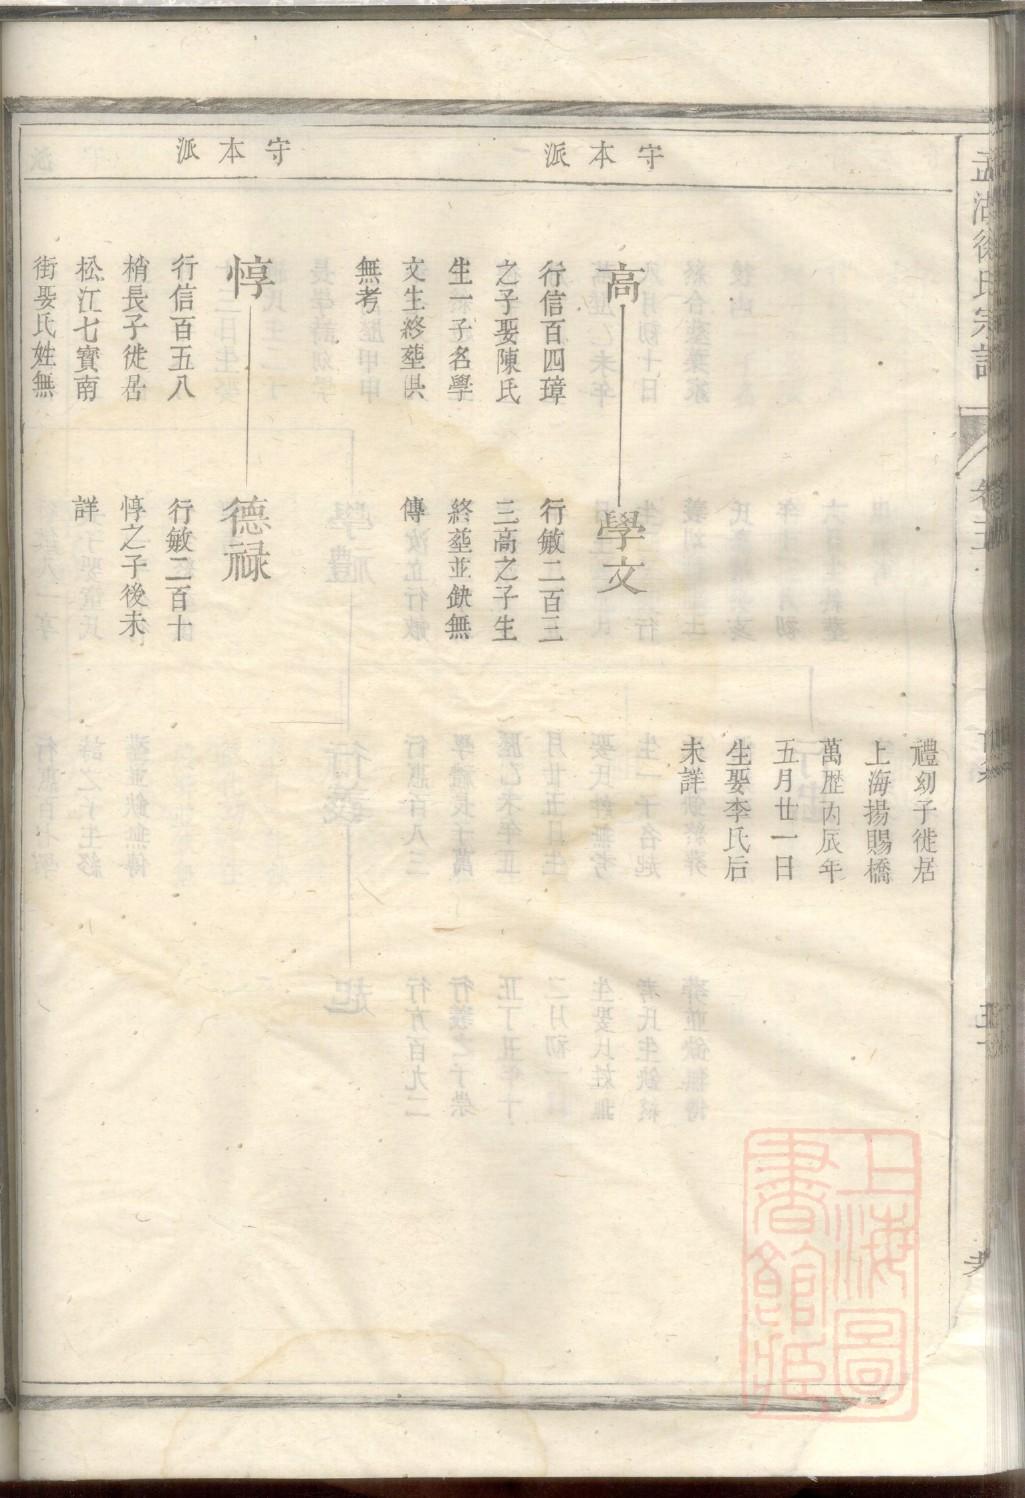 守本派
守本派
禮幼子徙居
上海揚賜橋
萬歷丙辰年
五月廿一日
生娶李氏后
未詳
高
行信百四璋
之子娶陳氏
生一子名學
文生終塟俱
無考
學文
行敏二百三
三高之子生
終塟並缺無
傳
惇
行信百五八
梢長子徙居
松江七寶南
街娶氏姓無
德禄
行敏二百十
惇之子後未
詳
孟湖徐氏宗譜
卷
上海圖
書館藏